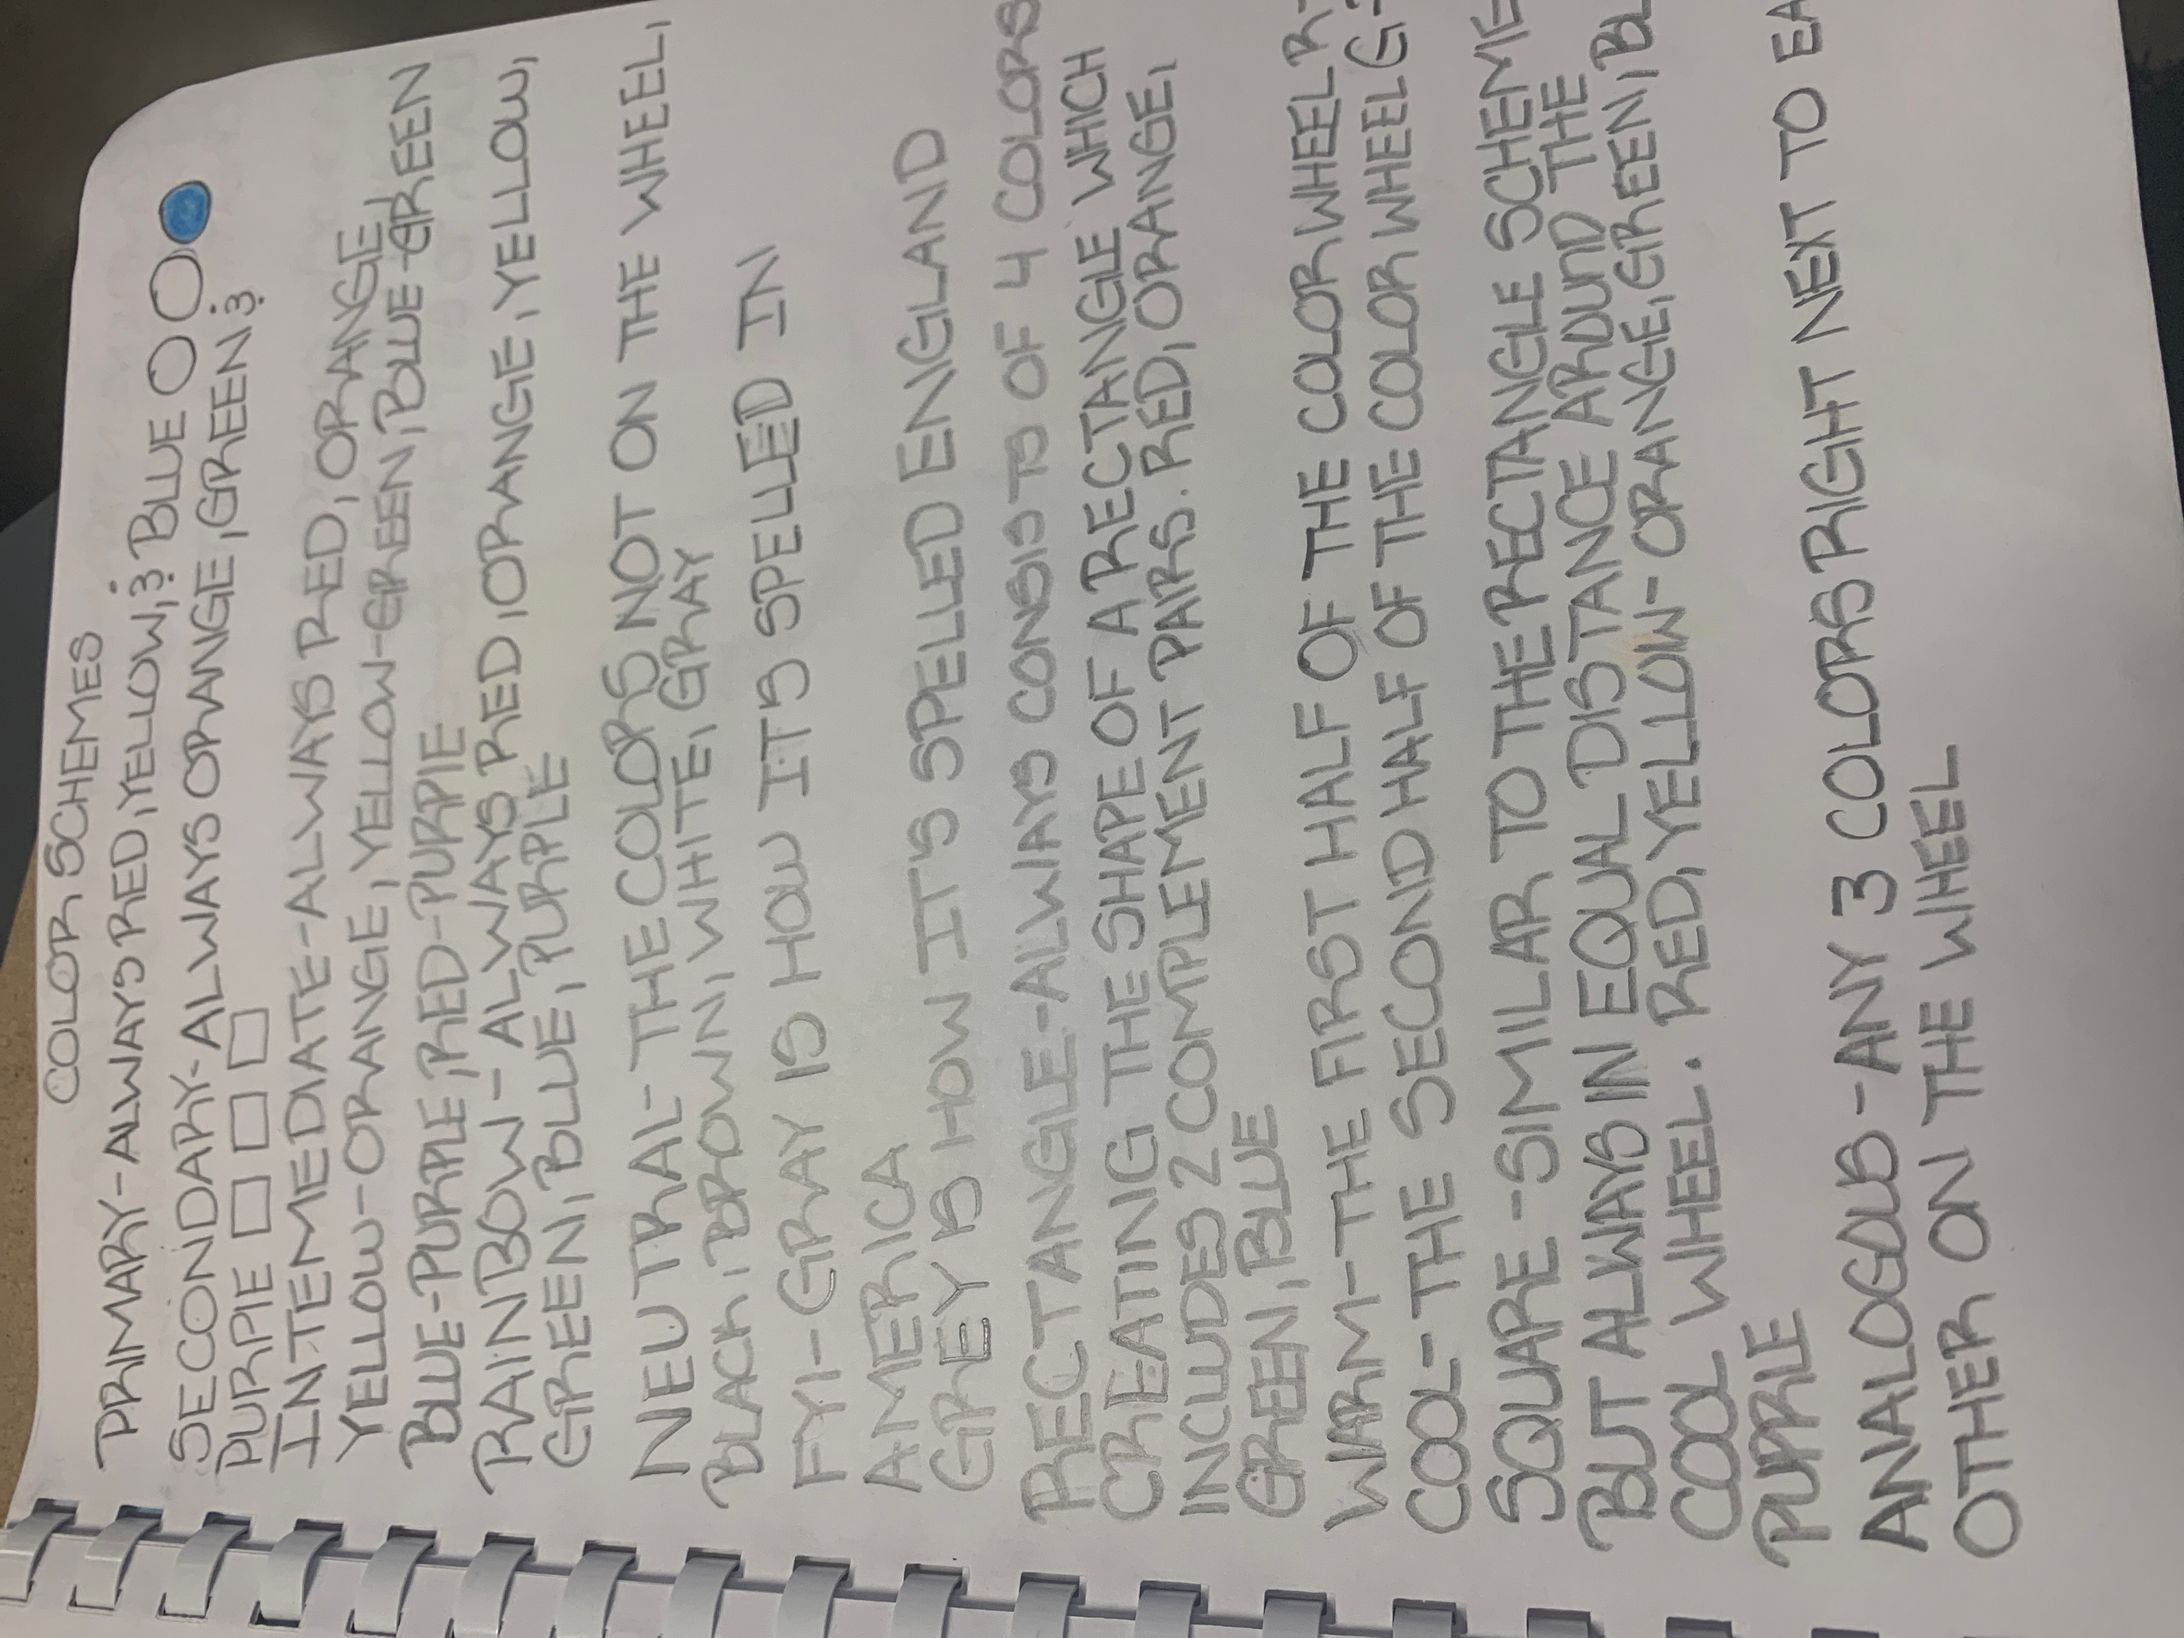 COLOR SCHEMES
PRIMARY-ALWAYS RED, YELLOW, & BLUE
SECONDARY-ALWAYS ORANGE, GREEN &
PURPIE
INTEMEDIATE-ALWAYS RED, ORANGE,
YELLOW-ORANGE, YELLOW-GREEN, BLUE-GREEN
BLUE-PURPLE, RED-PURPIE
RAINBOW-ALWAYS RED, ORANGE, YELLOW,
GREEN, BLUE, PURPLE
NEUTRAL-THE COLORS NOT ON THE WHEEL,
BLACK, BROWN, WHITE, GRAY
FYI-GRAY IS HOW IT'S SPELLED IN
AMERICA
GREY IS HOW IT'S SPELLED ENGLAND
RECTANGLE-ALWAYS CONSISTS OF 4 COLORS
CREATING THE SHAPE OF A RECTANGLE WHICH
INCLUDES 2 COMPLEMENT PAIRS. RED, ORANGE,
GREEN, BLUE
WARM-THE FIRST HALF OF THE COLOR WHEEL R-
COOL-THE SECOND HALF OF THE COLOR WHEEL G-
SQUARE-SIMILAR TO THE RECTANGLE SCHEME
BUT ALWAYS IN EQUAL DISTANCE AROUND THE
COOL WHEEL. RED, YELLOW-ORANGE, GREEN, BL
PUPRLE
ANALOGOUS-ANY 3 COLORS RIGHT NEXT TO EA
OTHER ON THE WHEEL